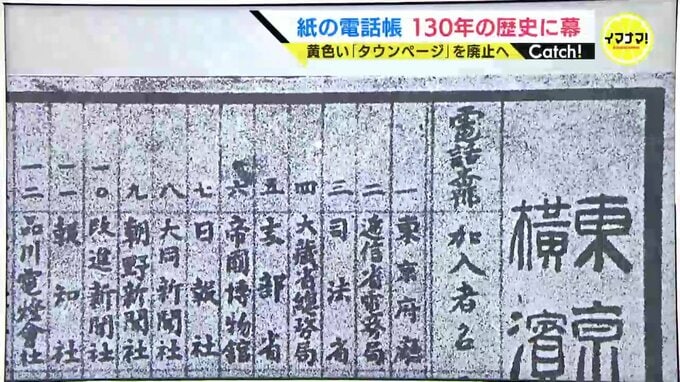 紙の電話帳 130年の歴史に幕
イマナマ!
黄色い「タウンページ」を廃止へ Catch!
東京
横濱
電話交換加入者名
一 東京府廳
二 遞信省電務局
三 司法省
四 大藏省總務局
五 文部省
六 帝國博物館
七 日報社
八 大同新聞社
九 朝野新聞社
一〇 改進新聞社
一一 報知社
一二 品川電燈會社